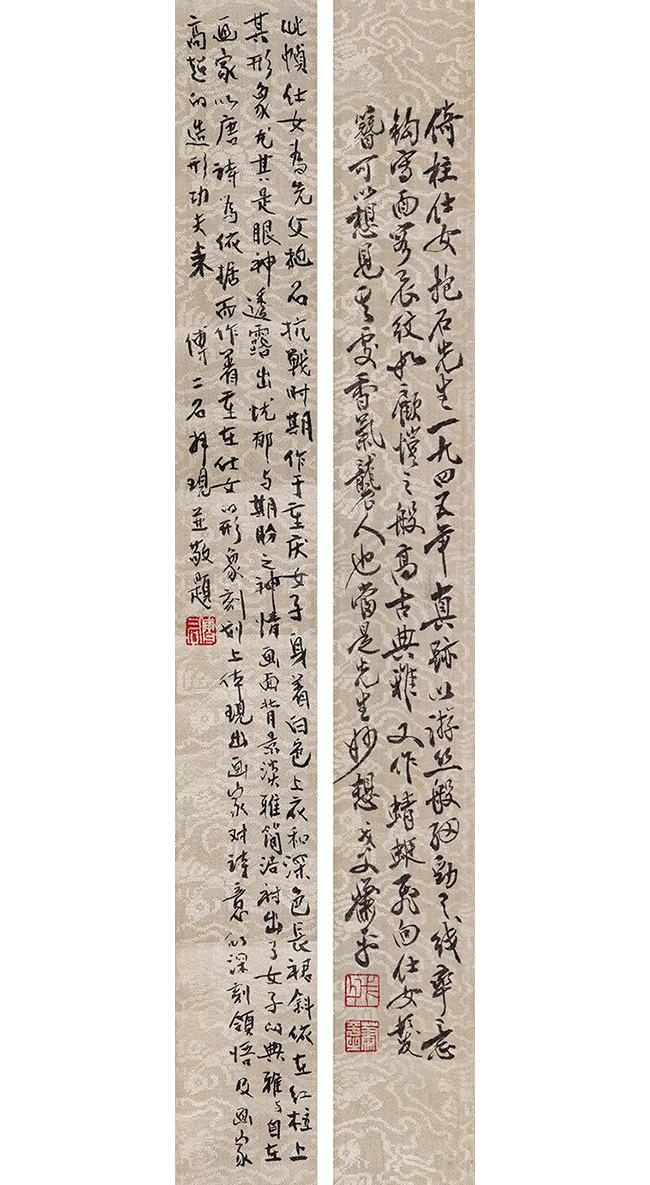 倚柱仕女抱石先生一九四五年真跡以游丝般细劲之线率意
鉤寫面容衣紋如顧愷之般高古典雅又作蜻蜓飛向仕女髮
簪可以想見其香氣襲人也當是先生妙想 戈父蕭平
此幀仕女為先父抱石抗戰时期作于重庆女子身着白色上衣和深色長裙斜依在红柱上
其形象尤其是眼神透露出忧郁与期盼之神情画面背景淡雅简洁衬出了女子的典雅与自在
画家以唐詩为依据而作着重在仕女的形象刻划上体現出画家对詩意的深刻領悟及画家
高超的造形功夫来 傅二石拜观並敬題